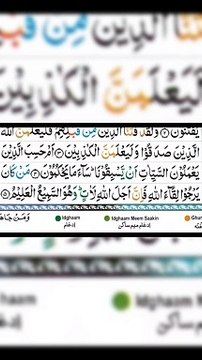 نَّا الَّذِيْنَ مِنْ
لَيَعْلَمَنَّ الْكٰذِبِيْنَ
يُفْتَنُوْنَ ۝۲ وَلَقَدْ فَتَنَّا الَّذِيْنَ مِنْ قَبْلِهِمْ فَلَيَعْلَمَنَّ اللّٰهُ
الَّذِيْنَ صَدَقُوْا وَلَيَعْلَمَنَّ الْكٰذِبِيْنَ ۝۳ اَمْ حَسِبَ الَّذِيْنَ
يَعْمَلُوْنَ السَّيِّاٰتِ اَنْ يَّسْبِقُوْنَا ؕ سَآءَ مَا يَحْكُمُوْنَ ۝۴ مَنْ كَانَ
يَرْجُوْا لِقَآءَ اللّٰهِ فَاِنَّ اَجَلَ اللّٰهِ لَاٰتٍ ؕ وَهُوَ السَّمِيْعُ الْعَلِيْمُ ۝۵
وَمَنْ
Idghaam
ادغام
Idghaam Meem Saakin
ادغام میم ساکن